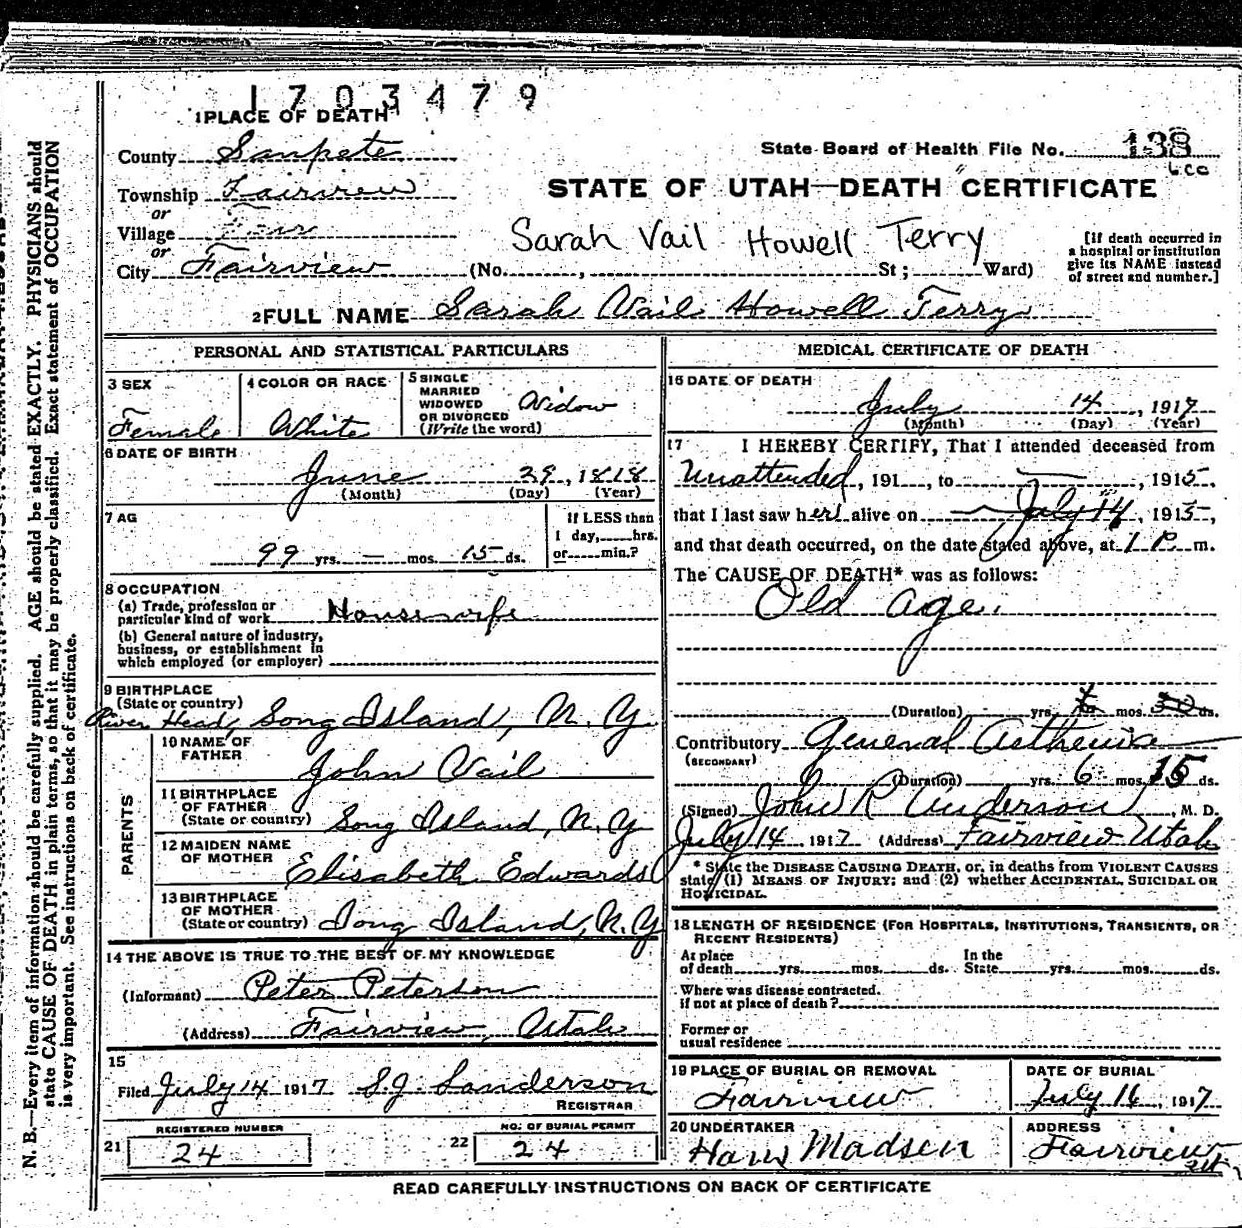 1703479
1 PLACE OF DEATH
County Sanpete
State Board of Health File No. 138
Township Fairview
or
Village
or
City Fairview
STATE OF UTAH—DEATH CERTIFICATE
Sarah Vail Howell Terry
(No. , St; Ward)
[If death occurred in
a hospital or institution
give its NAME instead
of street and number.]
2 FULL NAME Sarah Vail Howell Terry
PERSONAL AND STATISTICAL PARTICULARS
3 SEX
Female
4 COLOR OR RACE
White
5 SINGLE
MARRIED
WIDOWED
OR DIVORCED
(Write the word)
Widow
6 DATE OF BIRTH
June 29, 1818
(Month) (Day) (Year)
7 AG
99 yrs. — mos. 15 ds.
If LESS than
1 day, hrs.
or min.?
8 OCCUPATION
(a) Trade, profession or
particular kind of work Housewife
(b) General nature of industry,
business, or establishment in
which employed (or employer)
9 BIRTHPLACE
(State or country)
River Head, Long Island, N. Y.
PARENTS
10 NAME OF
FATHER
John Vail
11 BIRTHPLACE
OF FATHER
(State or country) Long Island, N. Y.
12 MAIDEN NAME
OF MOTHER
Elisabeth Edwards
13 BIRTHPLACE
OF MOTHER
(State or country) Long Island, N. Y.
14 THE ABOVE IS TRUE TO THE BEST OF MY KNOWLEDGE
(Informant) Peter Peterson
(Address) Fairview, Utah
15
Filed July 14 1917 S.J. Sanderson
REGISTRAR
REGISTERED NUMBER
21 24
NO. OF BURIAL PERMIT
22 24
MEDICAL CERTIFICATE OF DEATH
16 DATE OF DEATH
July 14, 1917
(Month) (Day) (Year)
17 I HEREBY CERTIFY, That I attended deceased from
Unattended, 191 , to — , 1915,
that I last saw her alive on July 14, 1915,
and that death occurred, on the date stated above, at 1 P. m.
The CAUSE OF DEATH* was as follows:
Old age.
(Duration) yrs. mos. ds.
Contributory General Asthenia
(SECONDARY)
(Duration) yrs. 6 mos. 15 ds.
(Signed) John R Anderson, M. D.
July 14 1917 (Address) Fairview Utah
* State the DISEASE CAUSING DEATH, or, in deaths from VIOLENT CAUSES
state (1) MEANS OF INJURY; and (2) whether ACCIDENTAL, SUICIDAL OR
HOMICIDAL.
18 LENGTH OF RESIDENCE (FOR HOSPITALS, INSTITUTIONS, TRANSIENTS, OR
RECENT RESIDENTS)
At place
of death yrs. mos. ds.
In the
State yrs. mos. ds.
Where was disease contracted.
if not at place of death?
Former or
usual residence
19 PLACE OF BURIAL OR REMOVAL
Fairview
DATE OF BURIAL
July 16, 1917
20 UNDERTAKER
Hans Madsen
ADDRESS
Fairview
READ CAREFULLY INSTRUCTIONS ON BACK OF CERTIFICATE
N. B.—Every item of information should be carefully supplied. AGE should be stated EXACTLY. PHYSICIANS should
state CAUSE OF DEATH in plain terms, so that it may be properly classified. Exact statement of OCCUPATION
is very important. See instructions on back of certificate.